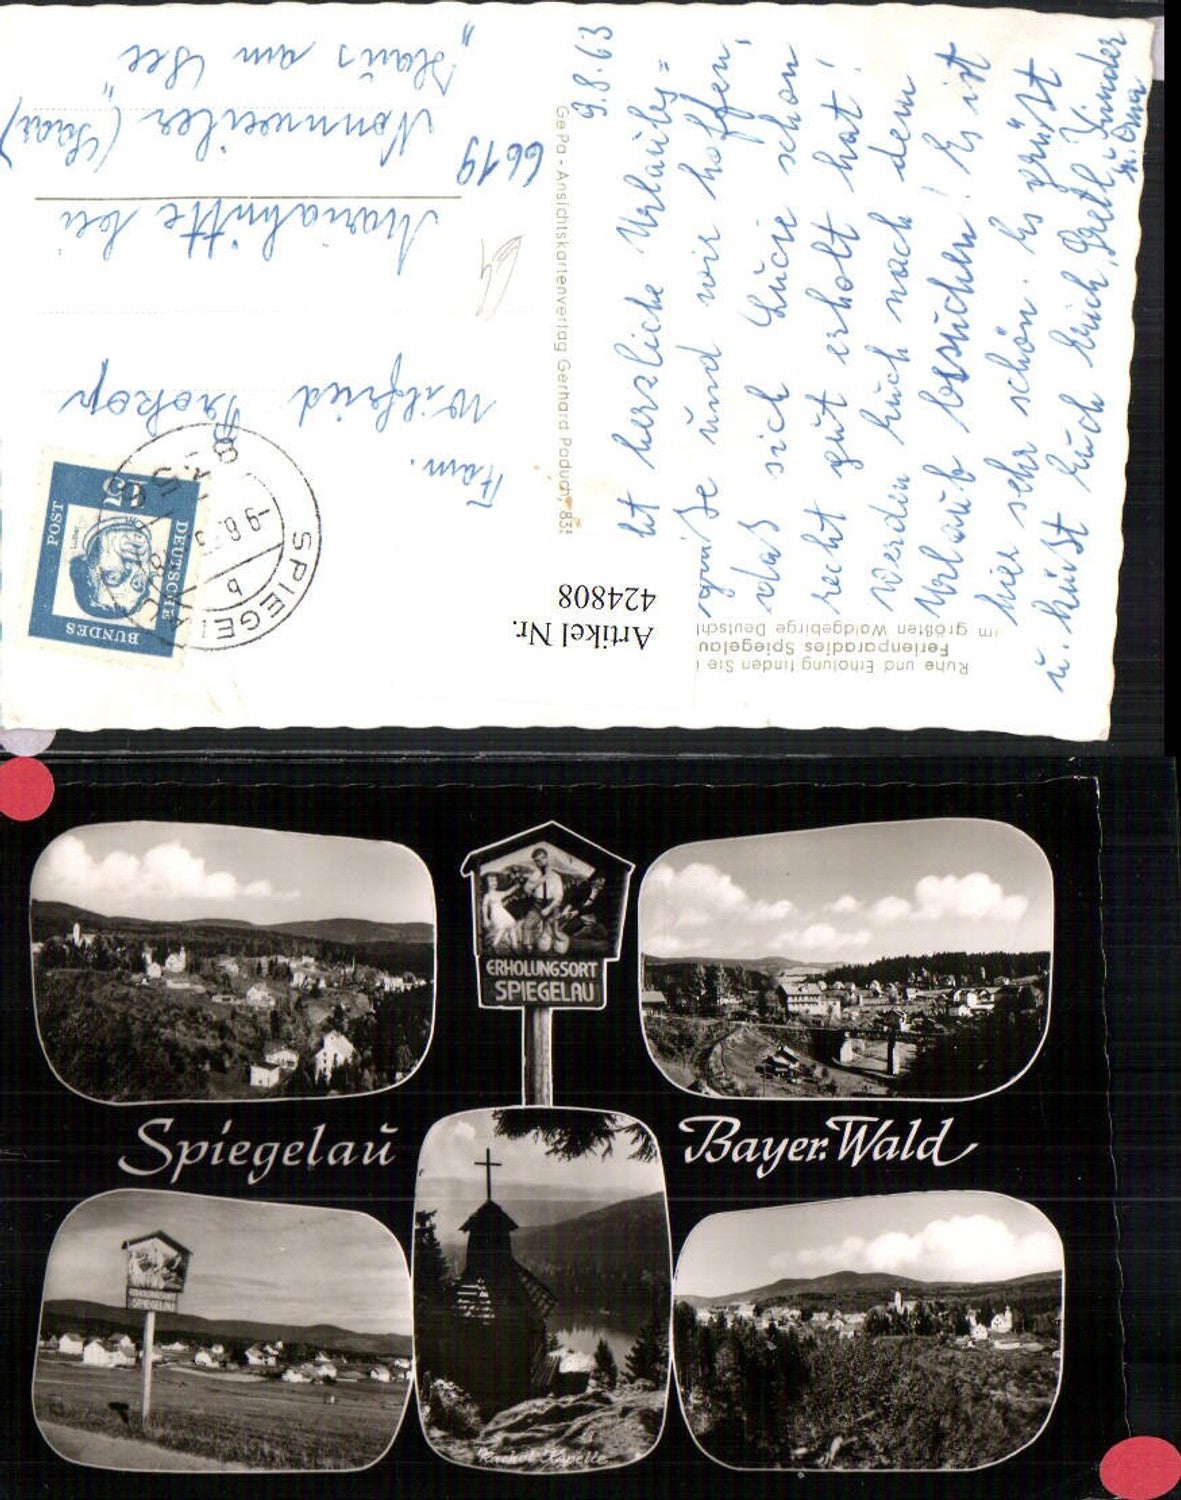 9.8.63
Ruhe und Erholung finden Sie i
Ferienparadies Spiegelau
im größten Waldgebirge Deutschl
GePa - Ansichtskartenverlag Gerhard Paduch, 835
Artikel Nr.
424808
herzliche Urlaubs=
grüße und wir hoffen,
daß sich Lucie schon
recht gut erholt hat!
Werden Euch nach dem
Urlaub besuchen! Es ist
hier sehr schön. Es grüßt
u. küßt Euch Erich, Gretl, Kinder
u. Oma
DEUTSCHE
BUNDES
POST
15
Luther
SPIEGELAU
b
-9.8.63
8356
Fam.
Wilfried Prokop
Mariahütte bei
6619 Nonnweiler (Saar)
„Haus am See"
ERHOLUNGSORT
SPIEGELAU
Spiegelau Bayer. Wald
SPIEGELAU
Rachel Kapelle